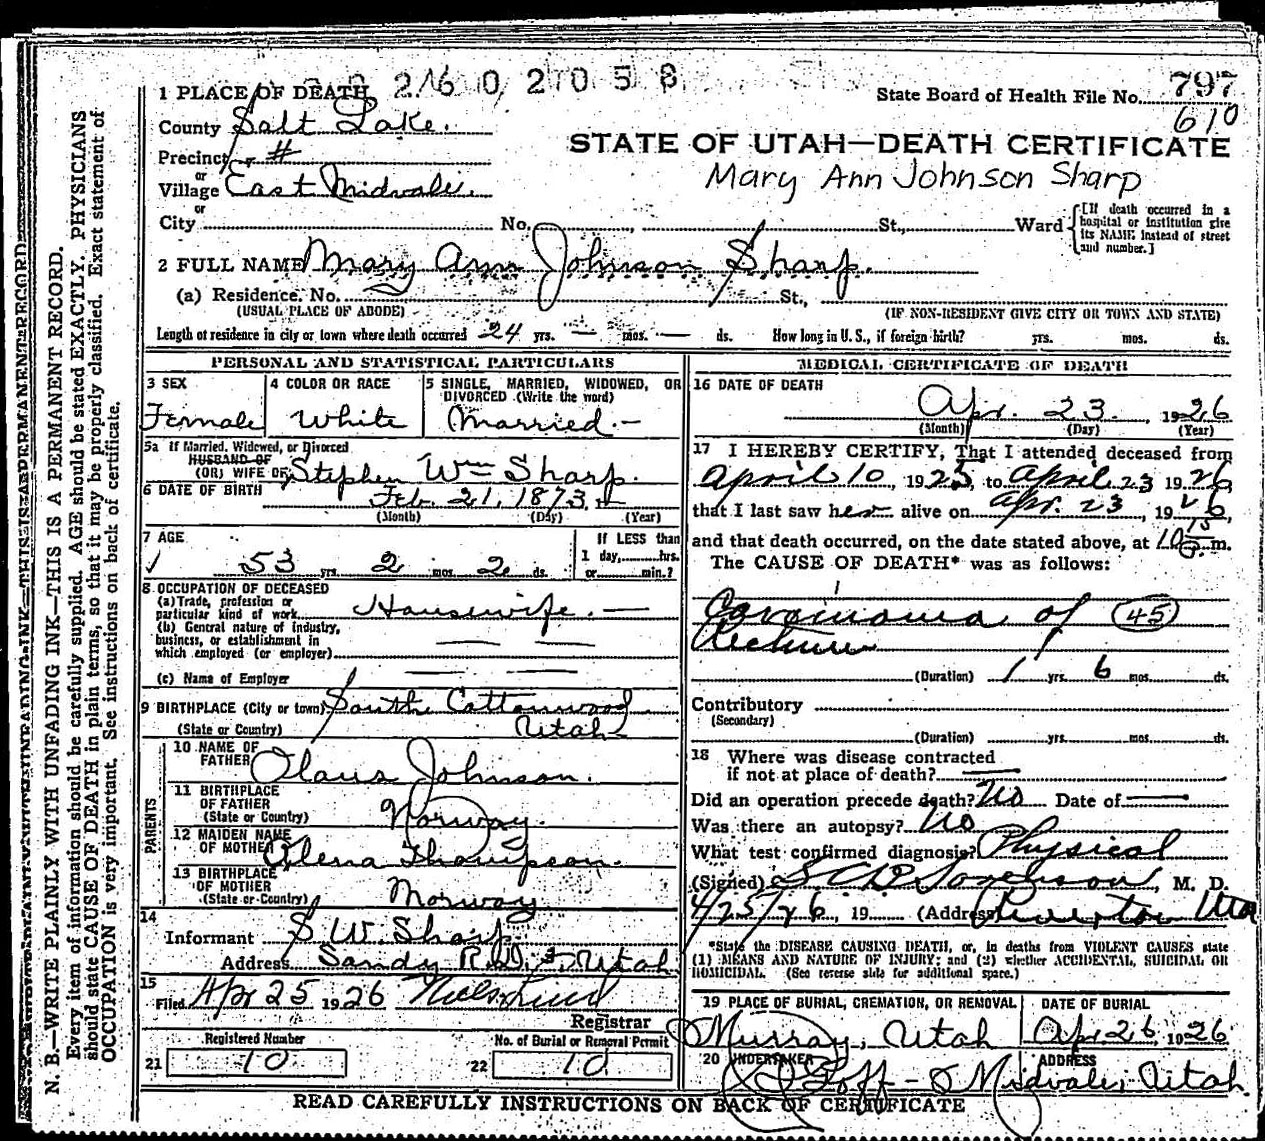 1 PLACE OF DEATH 2 16 0 2 0 5 8
State Board of Health File No. 797
610
County Salt Lake.
STATE OF UTAH—DEATH CERTIFICATE
Precinct #
Mary Ann Johnson Sharp
or
Village East Midvale.
or
City No. , St., Ward
[If death occurred in a
hospital or institution give
its NAME instead of street
and number.]
2 FULL NAME Mary Ann Johnson Sharp.
(a) Residence. No. St.,
(USUAL PLACE OF ABODE) (IF NON-RESIDENT GIVE CITY OR TOWN AND STATE)
Length of residence in city or town where death occurred 24 yrs. — mos. — ds. How long in U. S., if foreign birth? yrs. mos. ds.
PERSONAL AND STATISTICAL PARTICULARS
3 SEX
Female
4 COLOR OR RACE
White
5 SINGLE, MARRIED, WIDOWED, OR
DIVORCED (Write the word)
Married.—
5a If Married, Widowed, or Divorced
HUSBAND OF
(OR) WIFE OF Stephen Wm Sharp.
6 DATE OF BIRTH Feb. 21, 1873
(Month) (Day) (Year)
7 AGE
53 yrs. 2 mos. 2 ds.
If LESS than
1 day, hrs.
or min.?
8 OCCUPATION OF DECEASED
(a) Trade, profession or
particular kind of work Housewife.—
(b) General nature of industry,
business, or establishment in
which employed (or employer)
(c) Name of Employer
9 BIRTHPLACE (City or town) South Cottonwood
Utah
(State or Country)
PARENTS
10 NAME OF
FATHER Olaus Johnson.
11 BIRTHPLACE
OF FATHER
(State or Country) Norway.
12 MAIDEN NAME
OF MOTHER Olena Thompson.
13 BIRTHPLACE
OF MOTHER
(State or Country) Norway
14
Informant S. W. Sharp
Address Sandy R.D. Utah
15
Filed Apr 25 1926
Registrar
Registered Number
21 10
No. of Burial or Removal Permit
22 10
MEDICAL CERTIFICATE OF DEATH
16 DATE OF DEATH
Apr. 23 1926
(Month) (Day) (Year)
17 I HEREBY CERTIFY, That I attended deceased from
April 10, 1925, to April 23 1926,
that I last saw her alive on Apr. 23, 1926,
and that death occurred, on the date stated above, at 10 15 m.
The CAUSE OF DEATH* was as follows:
Carcinoma of 45
Rectum
(Duration) 1 yrs. 6 mos. ds.
Contributory
(Secondary)
(Duration) yrs. mos. ds.
18 Where was disease contracted
if not at place of death? —
Did an operation precede death? No Date of —
Was there an autopsy? No
What test confirmed diagnosis? Physical
(Signed) Sorenson, M. D.
4/25/26, 19 (Address) Riverton Utah
*State the DISEASE CAUSING DEATH, or, in deaths from VIOLENT CAUSES state
(1) MEANS AND NATURE OF INJURY; and (2) whether ACCIDENTAL, SUICIDAL OR
HOMICIDAL. (See reverse side for additional space.)
19 PLACE OF BURIAL, CREMATION, OR REMOVAL
Murray, Utah
DATE OF BURIAL
Apr. 26, 1926
20 UNDERTAKER
Goff
ADDRESS
Midvale, Utah
READ CAREFULLY INSTRUCTIONS ON BACK OF CERTIFICATE
N. B.—WRITE PLAINLY WITH UNFADING INK—THIS IS A PERMANENT RECORD.
Every item of information should be carefully supplied. AGE should be stated EXACTLY. PHYSICIANS
should state CAUSE OF DEATH in plain terms, so that it may be properly classified. Exact statement of
OCCUPATION is very important. See instructions on back of certificate.